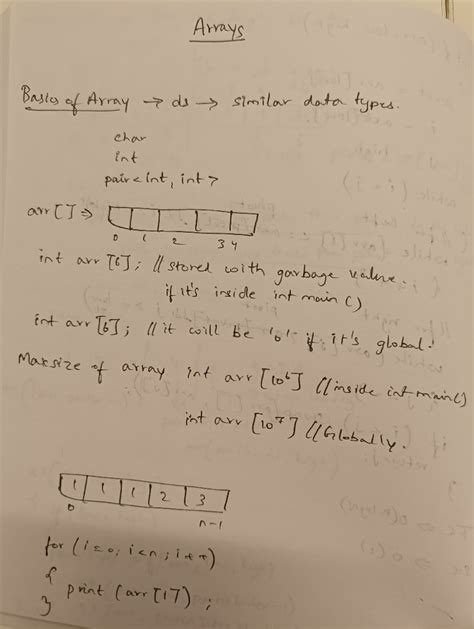 Arrays
Basics of Array → ds → similar data types.
char
int
pair<int, int>
arr[] ⇒
0 1 2 3 4
int arr [6]; // stored with garbage value.
if it's inside int main ()
int arr [6]; // it will be '0' if it's global.
Maxsize of array int arr [10⁶] // inside int main()
int arr [10⁷] // Globally.
1 1 1 2 3
0 n-1
for (i=0; i<n; i++)
{
print (arr[i]);
}